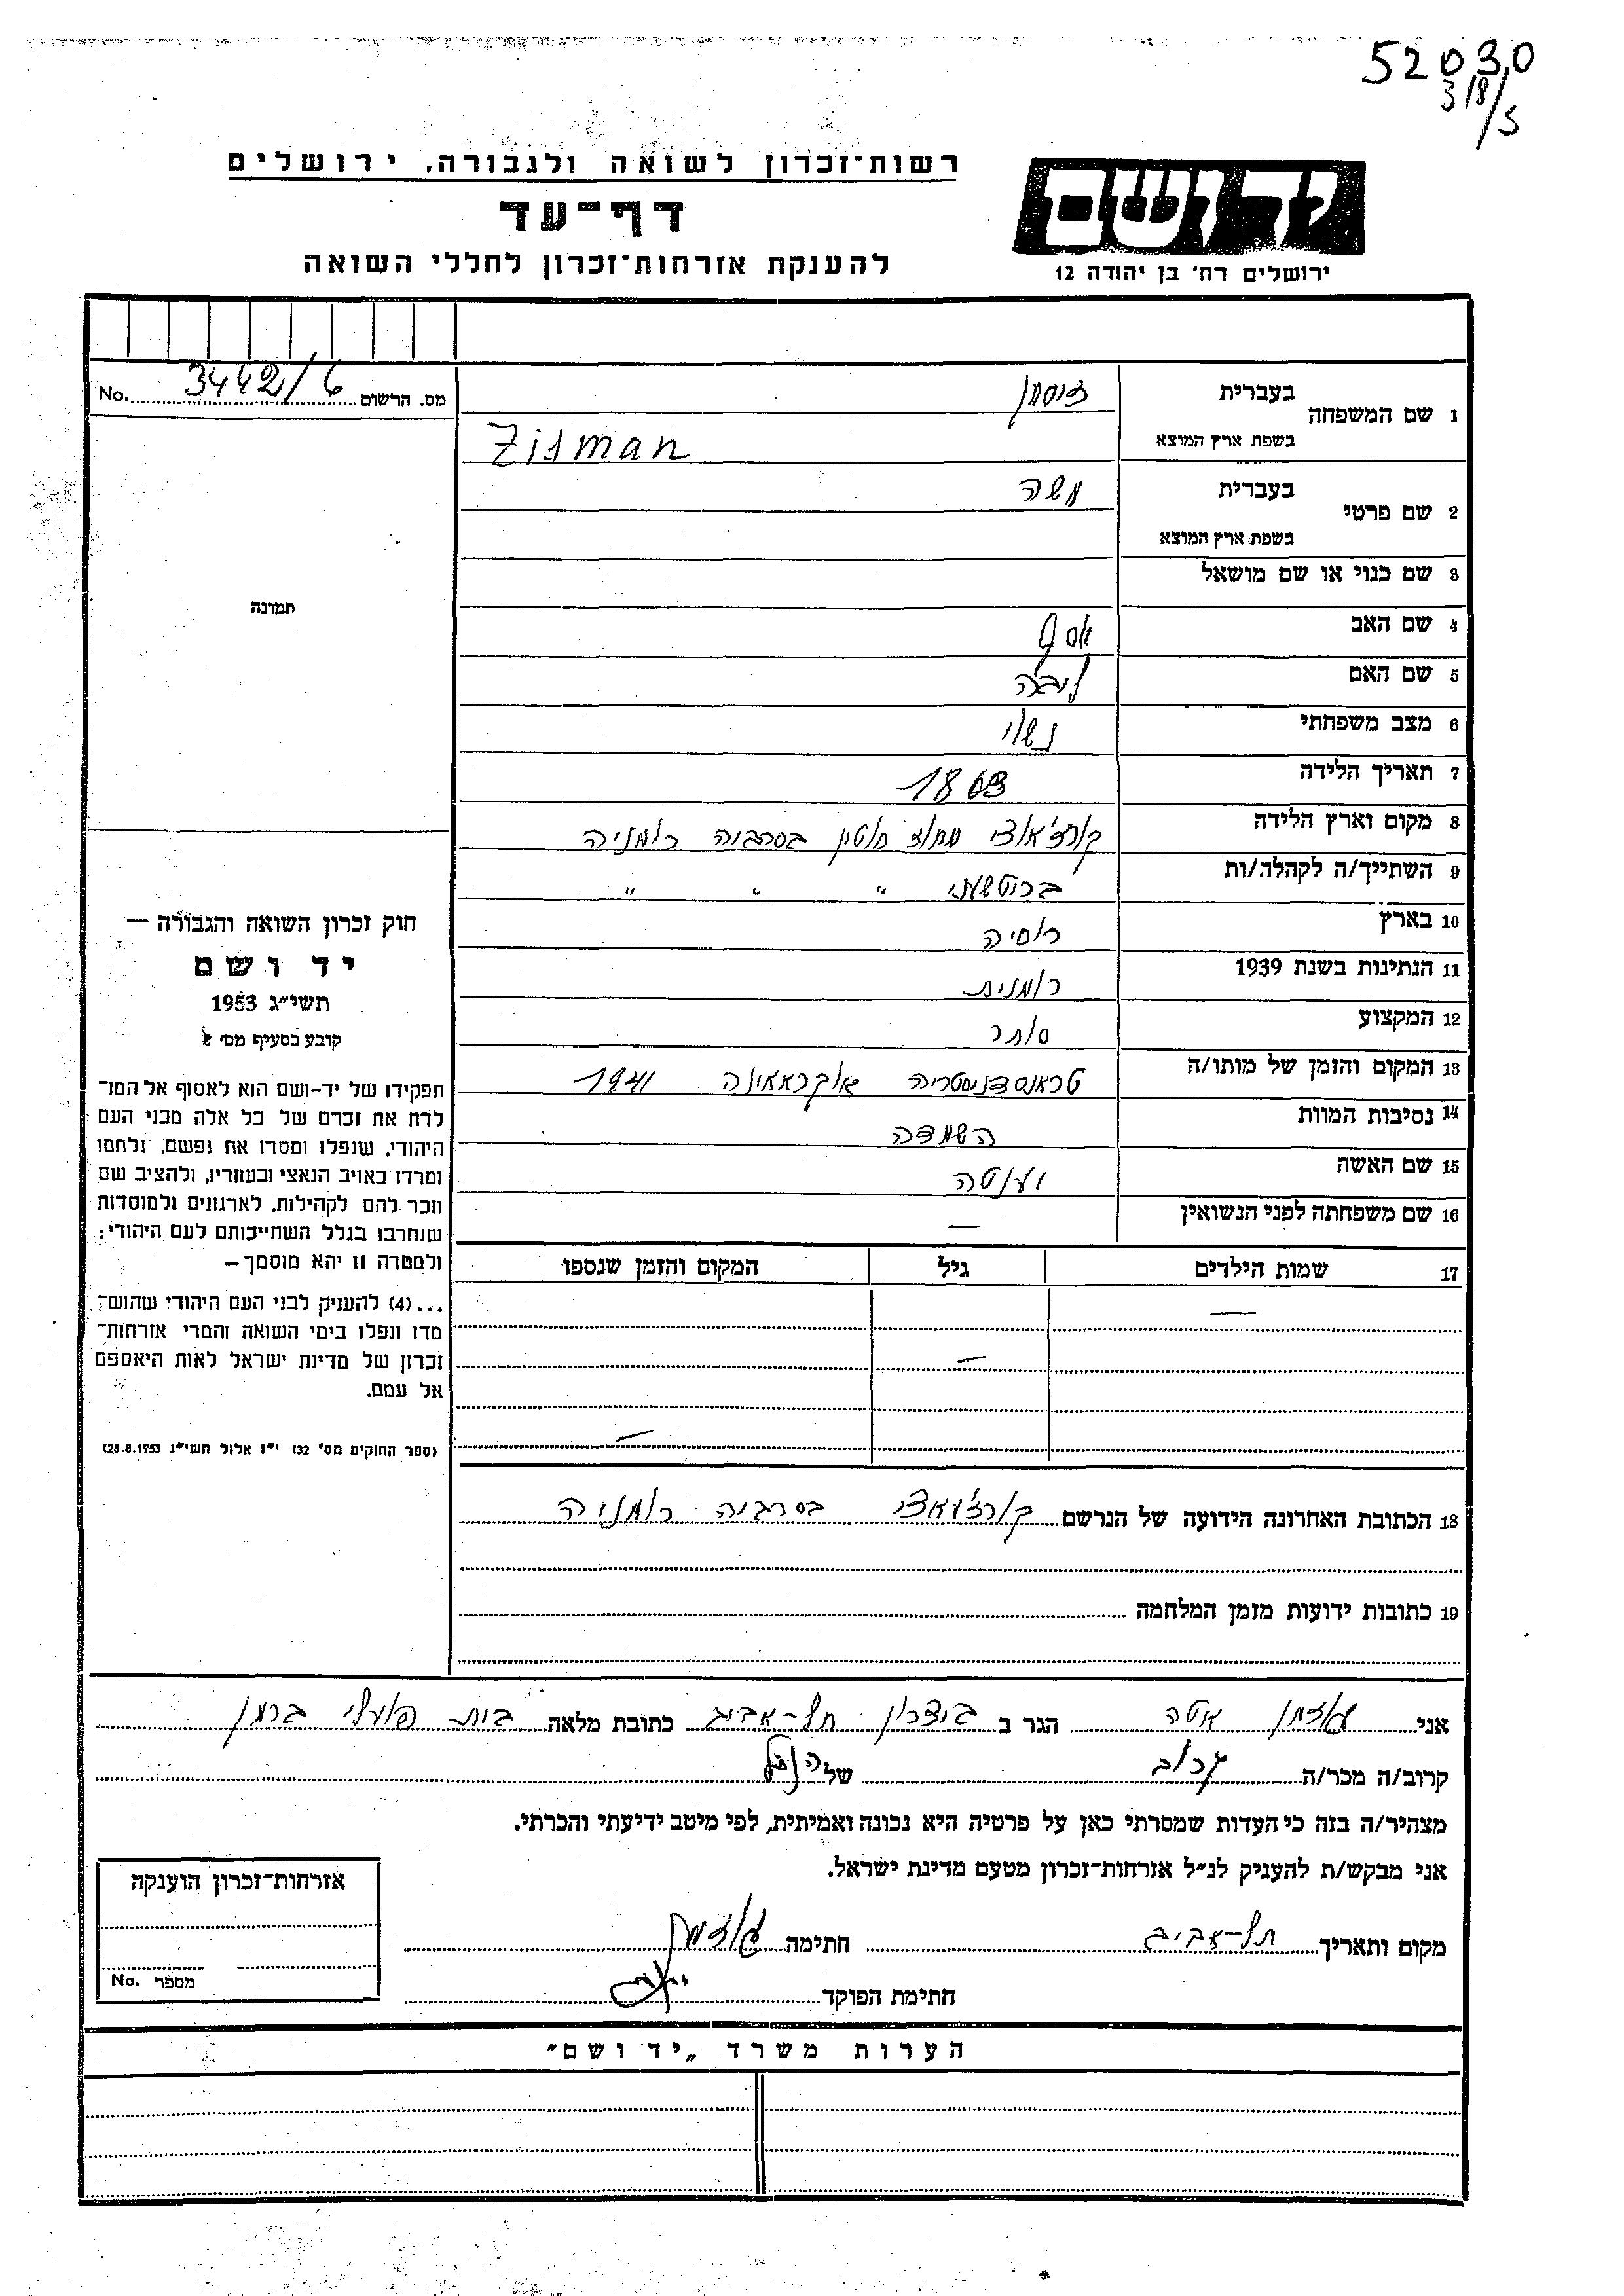 52030
318/5
רשות־זכרון לשואה ולגבורה, ירושלים
דף־עד
להענקת אזרחות־זכרון לחללי השואה
יד ושם
ירושלים רח' בן יהודה 12
מס. הרשום 3442/6 No.
1 שם המשפחה
בעברית זיסמן
בשפת ארץ המוצא Zisman
2 שם פרטי
בעברית משה
בשפת ארץ המוצא
3 שם כנוי או שם מושאל
4 שם האב יוסף
5 שם האם ליבה
6 מצב משפחתי נשוי
7 תאריך הלידה 1863
8 מקום וארץ הלידה מחוז בסרביה רומניה
9 השתייך/ה לקהלה/ות " " "
10 בארץ רוסיה
11 הנתינות בשנת 1939 רומנית
12 המקצוע סוחר
13 המקום והזמן של מותו/ה טראנסדניסטריה אוקראאינה 1941
14 נסיבות המוות השמדה
15 שם האשה יענטה
16 שם משפחתה לפני הנשואין —
17 שמות הילדים גיל המקום והזמן שנספו
— — —
18 הכתובת האחרונה הידועה של הנרשם בסרביה רומניה
19 כתובות ידועות מזמן המלחמה
תמונה
חוק זכרון השואה והגבורה —
יד ושם
תשי״ג 1953
קובע בסעיף מס׳ 2
תפקידו של יד-ושם הוא לאסוף אל המו־
לדת את זכרם של כל אלה מבני העם
היהודי, שנפלו ומסרו את נפשם, נלחמו
ומרדו באויב הנאצי ובעוזריו, ולהציב שם
וזכר להם לקהילות, לארגונים ולמוסדות
שנחרבו בגלל השתייכותם לעם היהודי;
ולמטרה זו יהא מוסמך—
...(4) להעניק לבני העם היהודי שהוש־
מדו ונפלו בימי השואה והמרי אזרחות־
זכרון של מדינת ישראל לאות היאספם
אל עמם.
(ספר החוקים מס' 132 י״ז אלול תשי״ג 28.8.1953)
אני אטה הגר ב ביצרון תל-אביב כתובת מלאה בית פועלי
קרוב/ה מכר/ה קרוב של הנ״ל
מצהיר/ה בזה כי העדות שמסרתי כאן על פרטיה היא נכונה ואמיתית, לפי מיטב ידיעתי והכרתי.
אני מבקש/ת להעניק לנ״ל אזרחות-זכרון מטעם מדינת ישראל.
מקום ותאריך תל-אביב חתימה
חתימת הפוקד
אזרחות־זכרון הוענקה
מספר No.
הערות משרד „יד ושם״